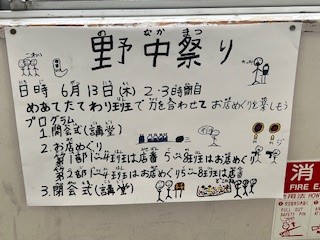 野中祭り
なか まつ
日時 6月13日(木) 2・3時間目
めあて たてわり班で力を合わせてお店めぐりを楽しもう
プログラム
1. 開会式(講堂)
2. お店めぐり
第1部 1〜4班は店番 5〜8班はお店めぐり
第2部 1〜4班はお店めぐり 5〜8班は店番
3. 閉会式(講堂)
消
FIRE E
使用法
PULL OUT
SAFETY PIN